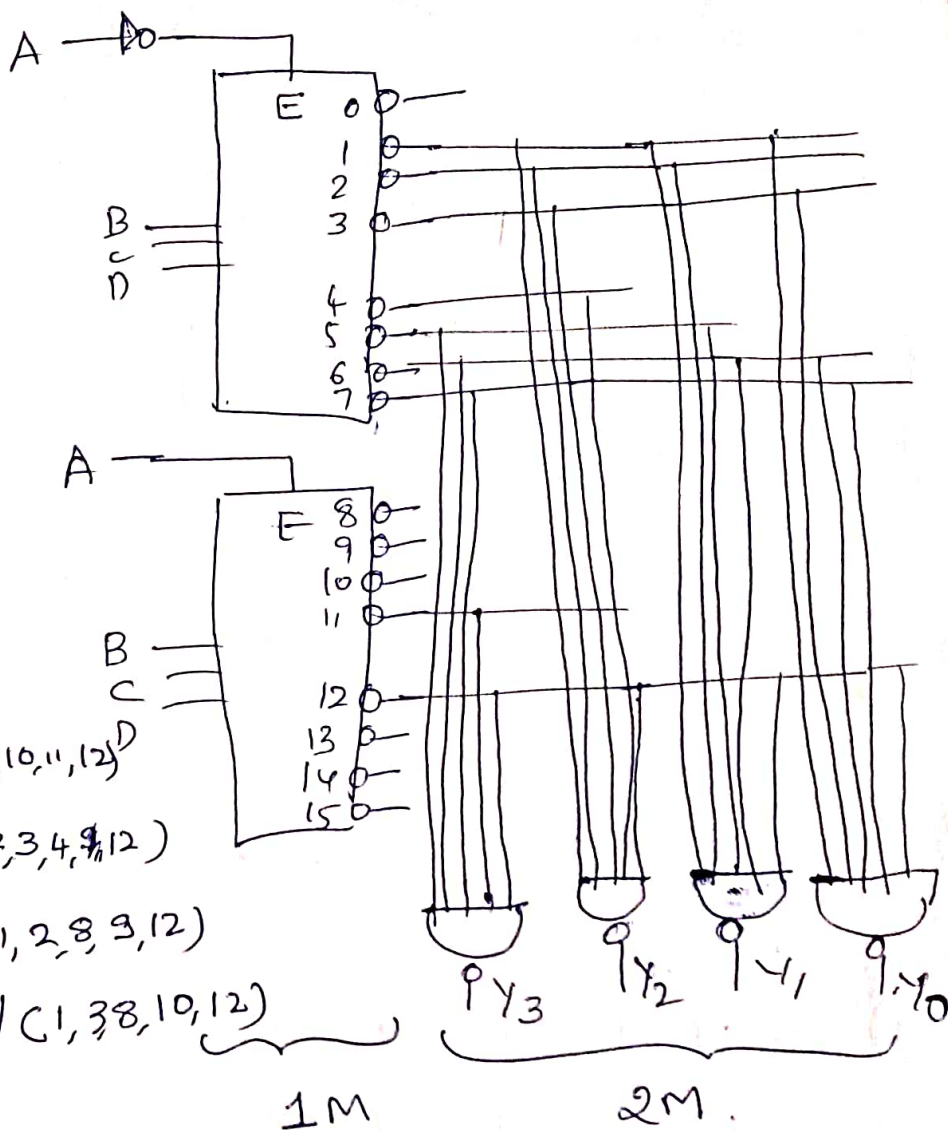 A
E 0
1
2
3
B
C
D
4
5
6
7
A
E 8
9
10
11
B
C
D
12
13
14
15
10,11,12)
3,4,9,12)
1,2,8,9,12)
(1,3,8,10,12)
Y3
Y2
Y1
Y0
1M
2M.